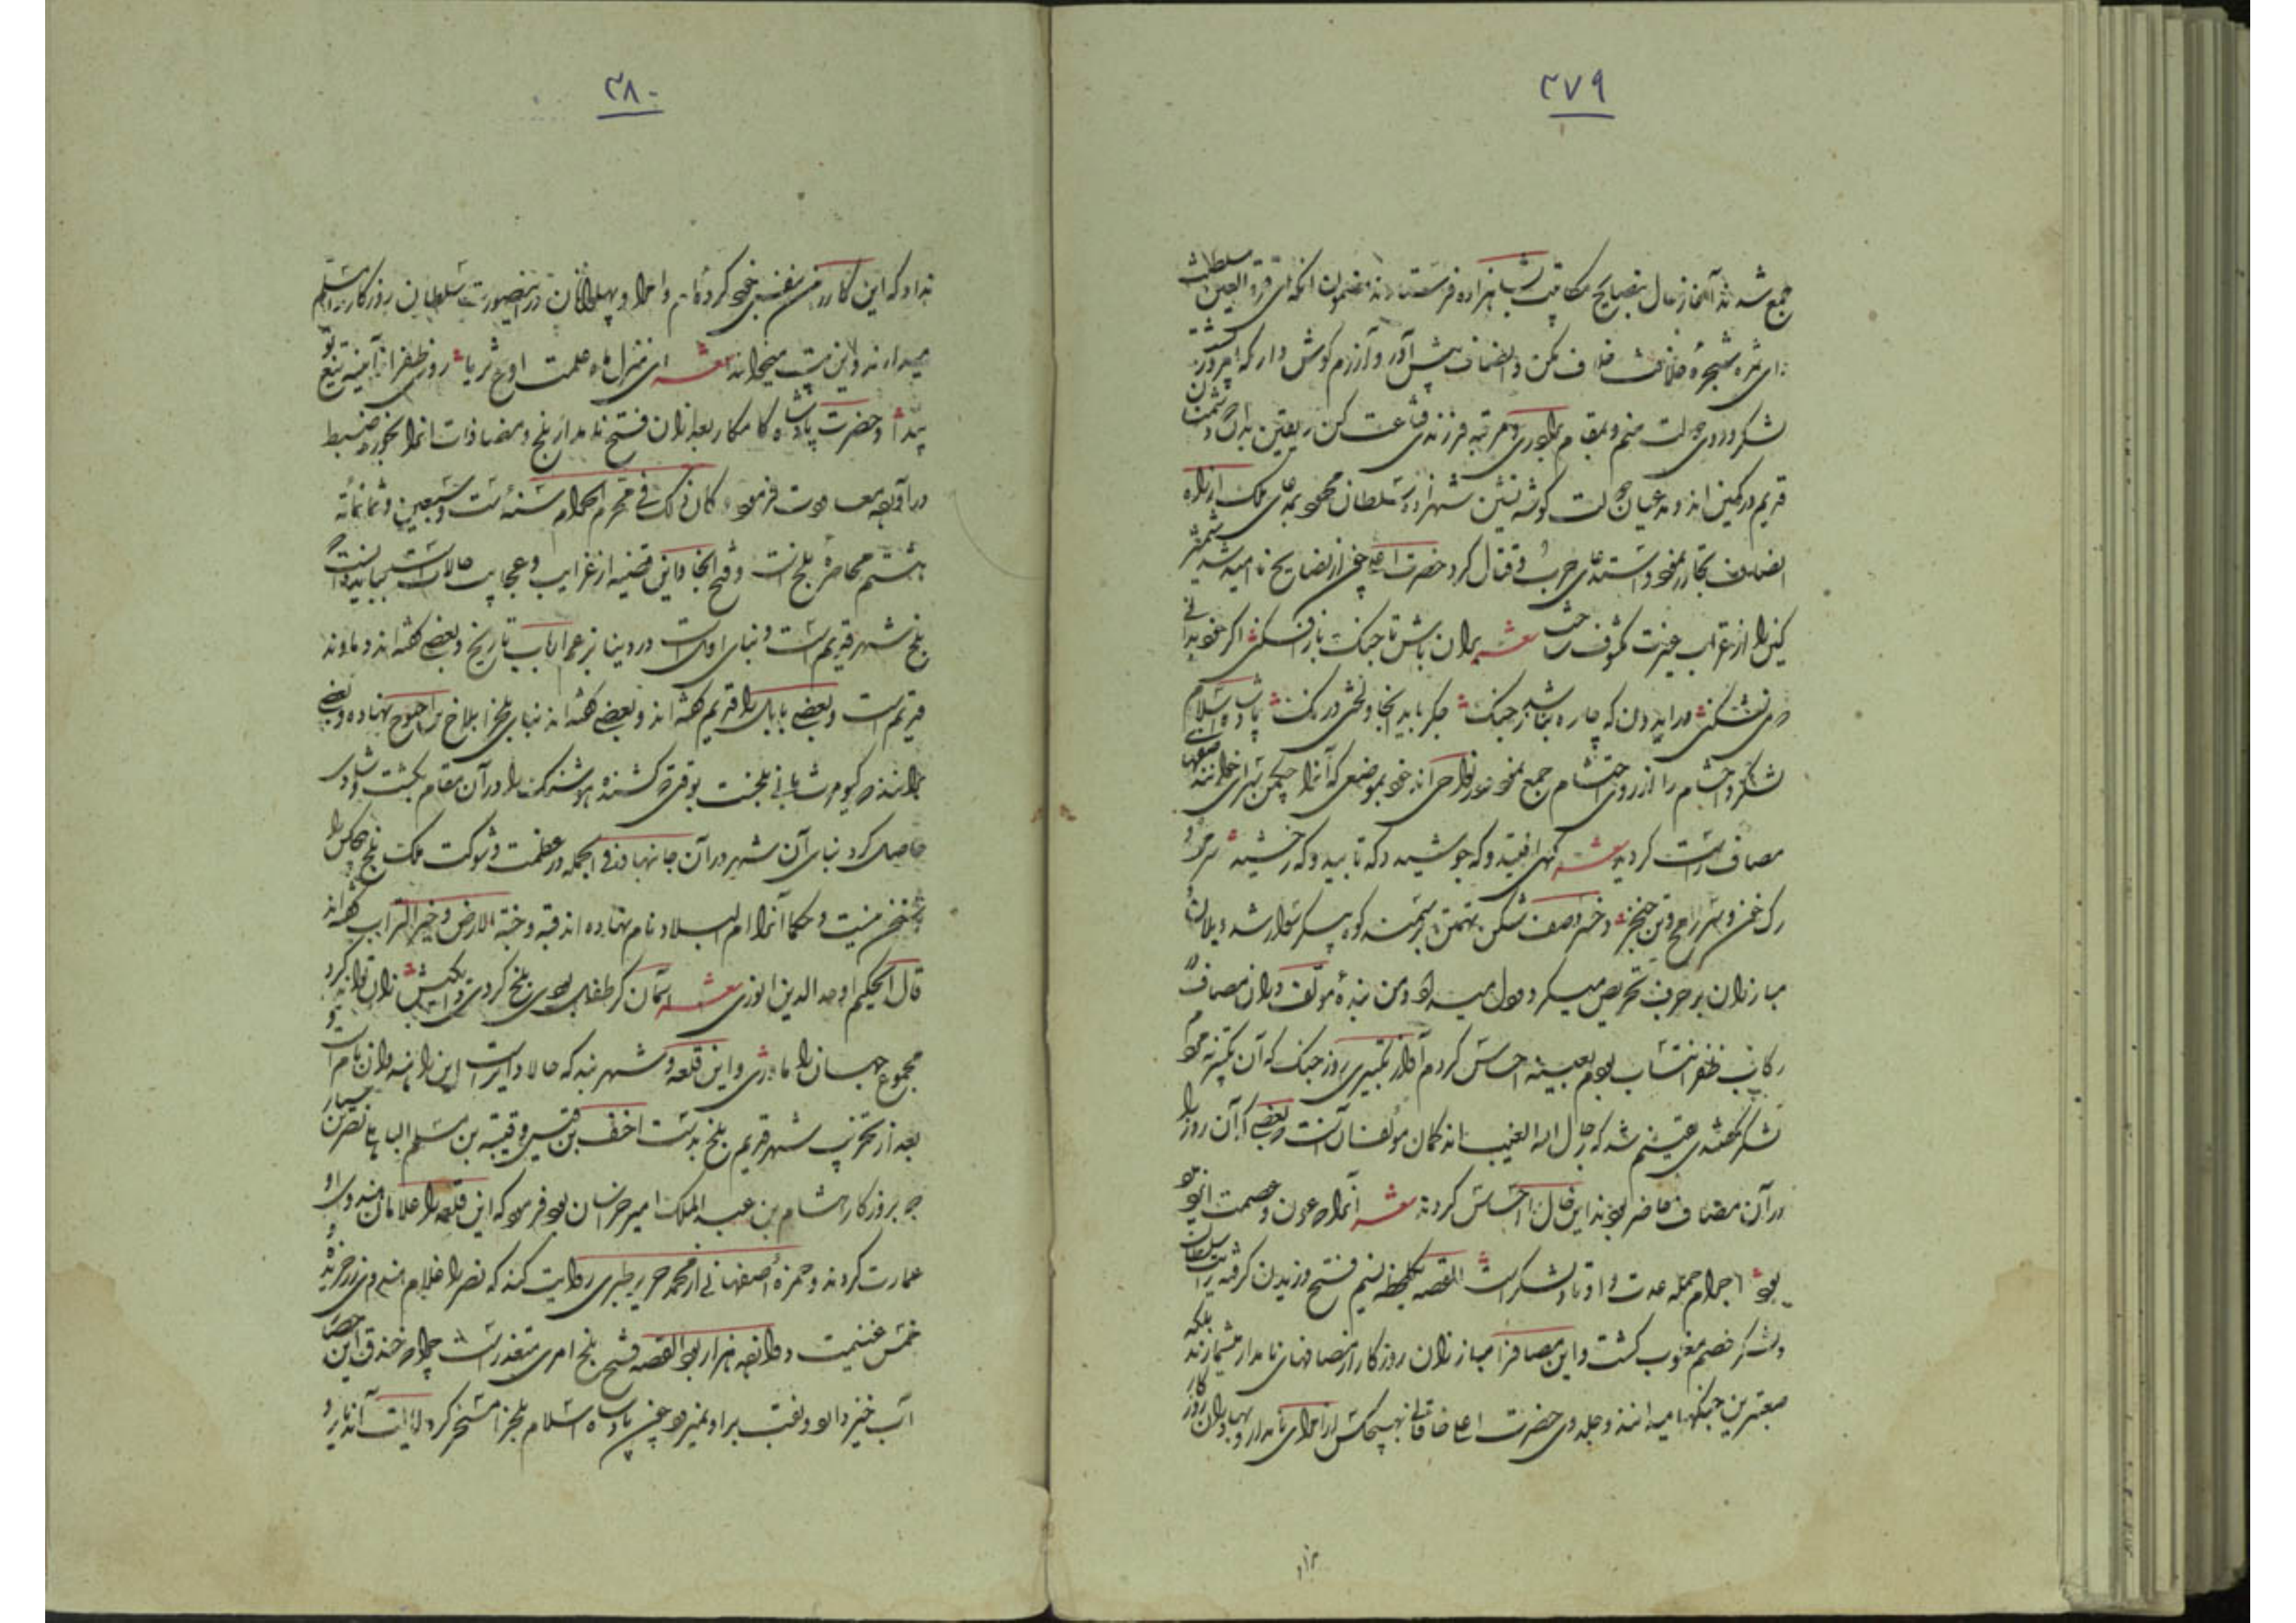 ۲۷۹
جمع شدند آغاز حال بنصایح مکاتبت بشاهزاده فرستادند مضمون آنکه ای قرة العین سلطنت
وای ثمره شجره خلافت خلاف مکن و انصاف پیش آور و آزرم گوش دار که امروز پشت
لشکر و روی دولت منم و بمقام برادری و مرتبه فرزندی قناعت کن یقین بدان که دشمنان
قدیم در کمین اند و مدعیان دولت گوشه نشین شهزاده سلطان محمود بمدعی ملک از راه
انصاف تجاوز نمود و استدعای حرب و قتال کرد حضرت اعلی چون از نصایح ناامید شد شمشیر
کین را از غراب غیرت مکشوف ساخت شعر بر آن باش تا جنگ باز افکنی اگر خود بدانی
در آیدون که چاره نباشد ز جنگ جگر باید آنجا و لختی درنگ پادشاه اسلام
لشکر و حشام را از روی احتشام جمع نمود در نواحی اندخود بموضعی که آنرا چکمن سرای خوانند صفهای
مصاف راست کردند شعر که افتید و که جوشید و که تابید و که رخشید سر مرد و
رگ خون و سر رمح و تن خنجر و خسرو صف شکن تهمتن بر سمند کوه پیکر سوار شد و یلان و
مبارزان بر حرف تحریص میکرد و دل میداد و من بنده مؤلف در آن مصاف در
رکاب ظفر انتساب بودم بعینه احساس کردم آواز تکبیری روز جنگ که آن تکبیر نه مردم
لشکر گفتندی یقینم شد که رجال الله الغیب اند گمان مؤلف آنست و بعضی که آن روز را
در آن مصاف حاضر بودند این حال احساس کردند شعر آنرا که عون و عصمت ایزد
بود اجرام جمله عدت و اوتاد لشکر است القصه بلحظه نسیم فتح وزیدن گرفت رایات سلطان
ولشکر خصم مغلوب گشت و این مصاف را مبارزان روزگار از مصافهای نامدار میشمارند بلکه
معتبرترین جنگها میدانند و جلدوی حضرت اعلی خاقانی هیچکس از امرای نامدار و بهادران روزگار
برآر
۲۸۰
نداد که این کار من بنفس خود کرده ام و امرا و پهلوانان در اینصورت سلطان روزگار را مسلم
میدارند و این بیت میخوانند شعر ای منزل ماه علمت اوج ثریا روز ظفر از آینه تیغ تو
پیدا و حضرت پادشاه کامکار بعد از آن فتح نامدار بلخ و مضافات آنرا بحوزه ضبط
درآورده معاودت فرمود و کان ذلک فی محرم الحرام سنه ست و سبعین و ثمانمائه
هشتم محاصره بلخ است و فتح آنجا و این قضیه از غرایب و عجایب حالات است بباید دانست که
بلخ شهر قدیم است و بنای او است در دنیا بزعم ارباب تاریخ و بعضی گفته اند دماوند
قدیم است و بعضی بابل را قدیم گفته اند و بعضی گفته اند بنای بلخ را بلاخ بن اخنوخ نهاده و بعضی
برانند که کیومرث بانی بلخست بوقتی که کشنده هوشنگ را در آن مقام بکشت و شادی
حاصل کرد بنای آن شهر در آن جا نهاد و فی الجمله در عظمت و شوکت ملک بلخ هیچکس را
سخن نیست و حکما آنرا ام البلاد نام نهاده اند و قبه و جنة الارض و خیر التراب گفته اند
قال الحکیم اوحد الدین انوری شعر آسمان گر طفل بودی بلخ کردی دایگیش زان تواند کرد
مجموع جهان را مادری و این قلعه و شهر بند که حالا دایر است این را هندوان نام است و
بعد از تخریب شهر قدیم بلخ بدست احنف بن قیس و قتیبه بن مسلم الباهلی نصر بن سیار
که بروزگار هشام بن عبد الملک امیر خراسان بود فرمود که این قلعه را غلامان هندوی او
عمارت کردند و حمزه اصفهانی از محمد جریر طبری روایت کند که نصر را غلام هندوی زرخریده و
خمس غنیمت دوازده هزار بود القصه فتح بلخ امری متعذر است چرا که خندق این حصار
آب خیز دارد و نقب بر او نمیرود چون پادشاه اسلام بلخ را مسخر کرد ایالت آن دیار و